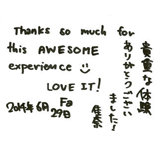 Thanks so much for
this AWESOME
experience
LOVE IT!
貴重な体験
ありがとうござい
ました!
2014年6月29日